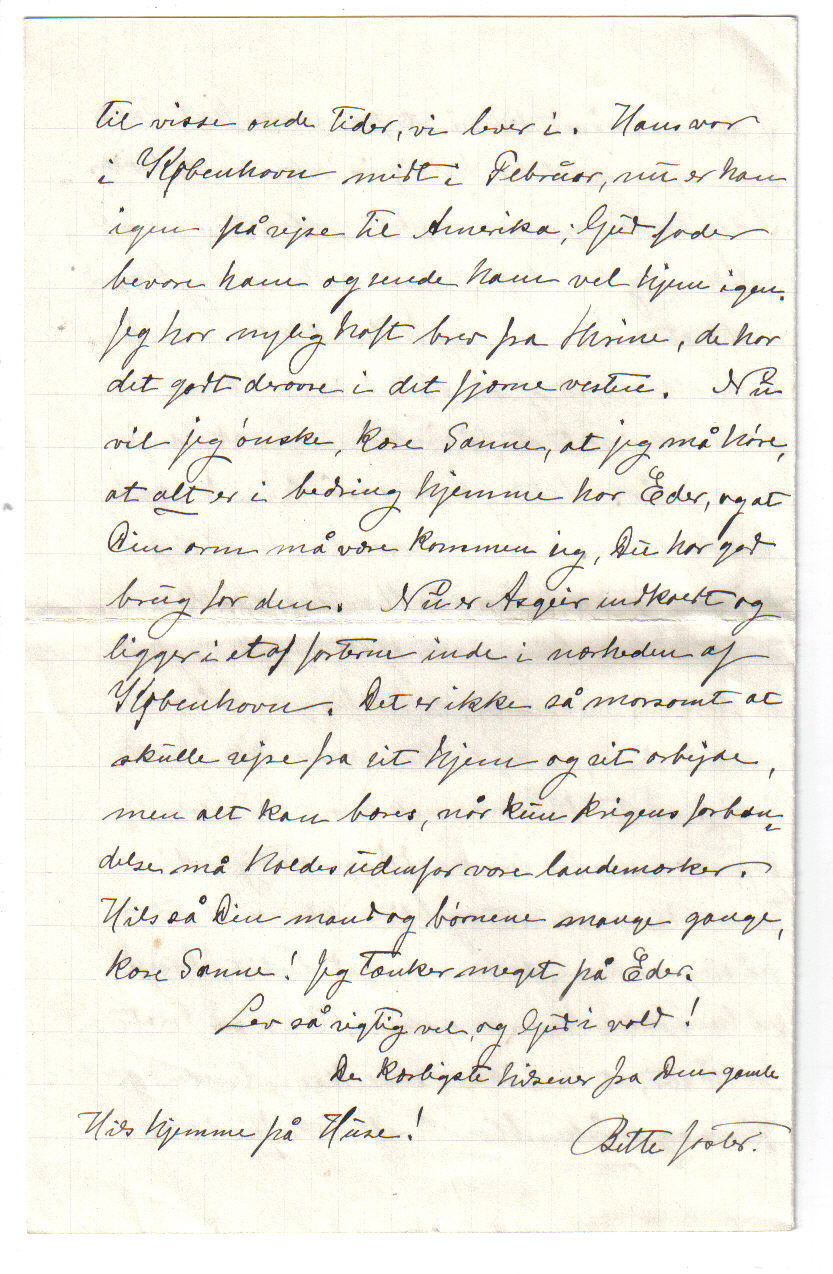 til visse onde tider, vi lever i. Hans var
i København midt i Februar, nu er han
igen på rejse til Amerika; Gud fader
bevare ham og sende ham vel hjem igen.
Jeg har nylig haft brev fra Thrine, de har
det godt derovre i det fjærne vesten. Nu
vil jeg ønske, kære Sanne, at jeg må høre,
at alt er i bedring hjemme hos Eder, og at
Din arm må være kommen sig, Du har god
brug for den. Nu er Asgeir indkaldt og
ligger i et af forterne inde i nærheden af
København. Det er ikke så morsomt at
skulle rejse fra sit hjem og sit arbejde,
men alt kan bæres, når kun krigens forban-
delse må holdes udenfor vore landemærker.
Hils så Din mand og børnene mange gange,
kære Sanne! Jeg tænker meget på Eder.
Lev så rigtig vel, og Gud i vold!
De kærligste hilsener fra Din gamle
Hils hjemme på Huse! Bette faster.